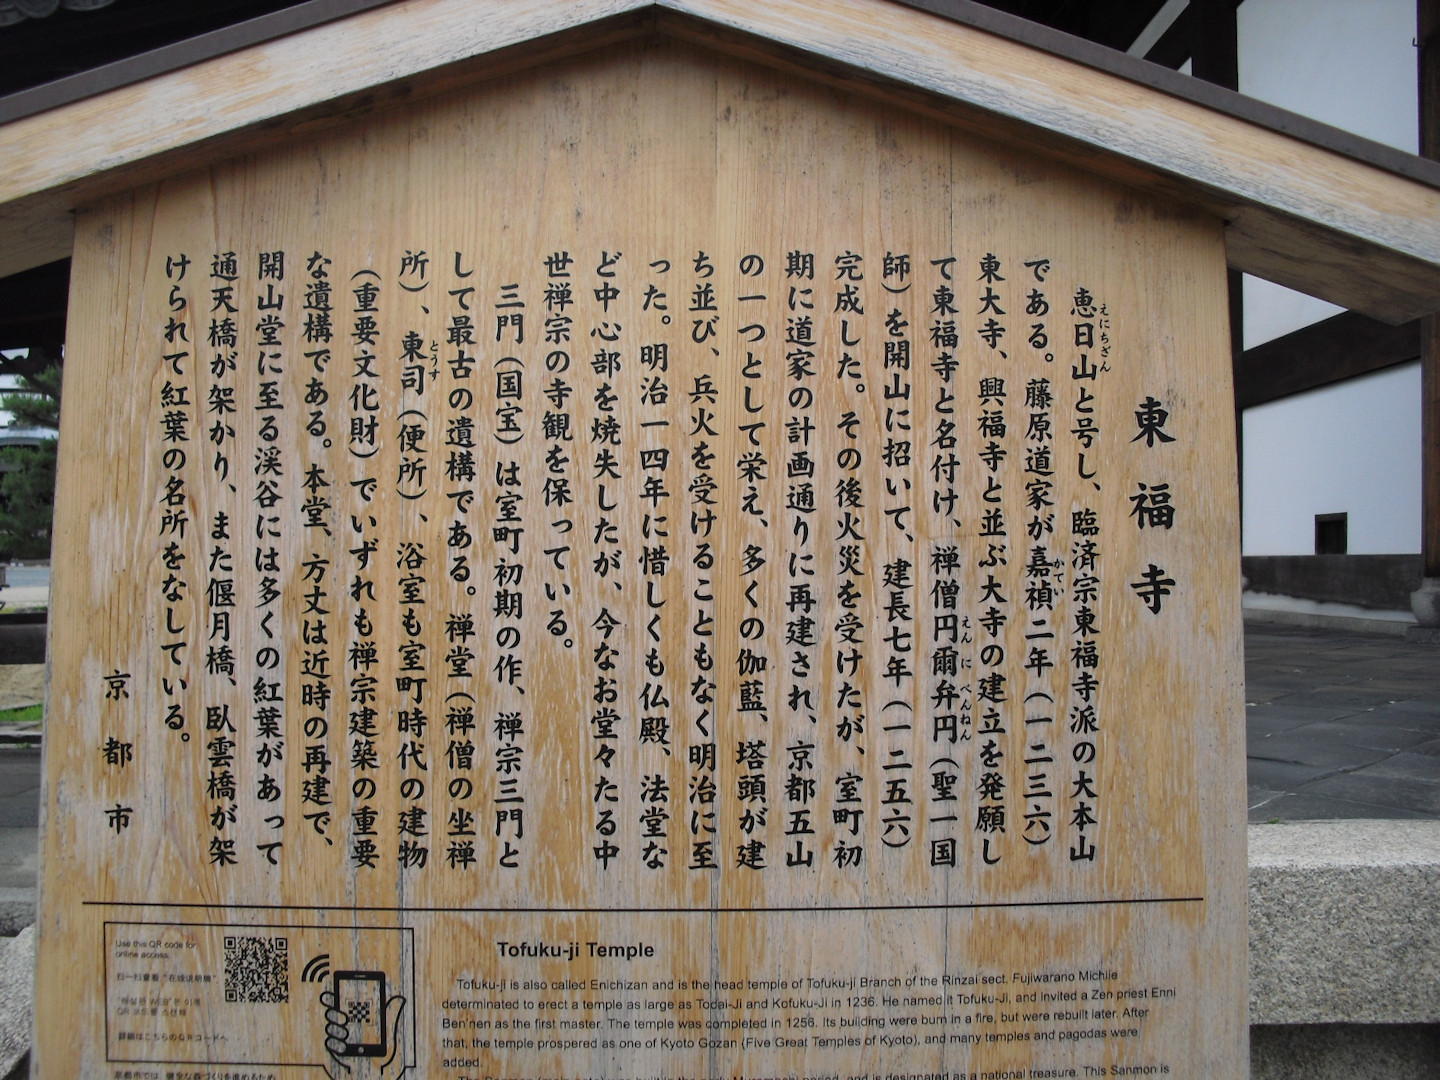 東福寺
恵日山と号し、臨済宗東福寺派の大本山
えにちざん
である。藤原道家が嘉禎二年（一二三六）
かてい
東大寺、興福寺と並ぶ大寺の建立を発願し
て東福寺と名付け、禅僧円爾弁円（聖一国
えんにべんねん
師）を開山に招いて、建長七年（一二五六）
完成した。その後火災を受けたが、室町初
期に道家の計画通りに再建され、京都五山
の一つとして栄え、多くの伽藍、塔頭が建
ち並び、兵火を受けることもなく明治に至
った。明治一四年に惜しくも仏殿、法堂な
ど中心部を焼失したが、今なお堂々たる中
世禅宗の寺観を保っている。
三門（国宝）は室町初期の作、禅宗三門と
して最古の遺構である。禅堂（禅僧の坐禅
所）、東司（便所）、浴室も室町時代の建物
とうす
（重要文化財）でいずれも禅宗建築の重要
な遺構である。本堂、方丈は近時の再建で、
開山堂に至る渓谷には多くの紅葉があって
通天橋が架かり、また偃月橋、臥雲橋が架
けられて紅葉の名所をなしている。
京都市
Use this QR code for
online access.
扫一扫查看“在线说明牌”
QR 코드를 스캔해
詳細はこちらのQRコードへ
Tofuku-ji Temple
Tofuku-ji is also called Enichizan and is the head temple of Tofuku-ji Branch of the Rinzai sect. Fujiwarano Michiie
determinated to erect a temple as large as Todai-Ji and Kofuku-Ji in 1236. He named it Tofuku-Ji, and invited a Zen priest Enni
Ben'nen as the first master. The temple was completed in 1256. Its building were burn in a fire, but were rebuilt later. After
that, the temple prospered as one of Kyoto Gozan (Five Great Temples of Kyoto), and many temples and pagodas were
added.
period, and is designated as a national treasure. This Sanmon is